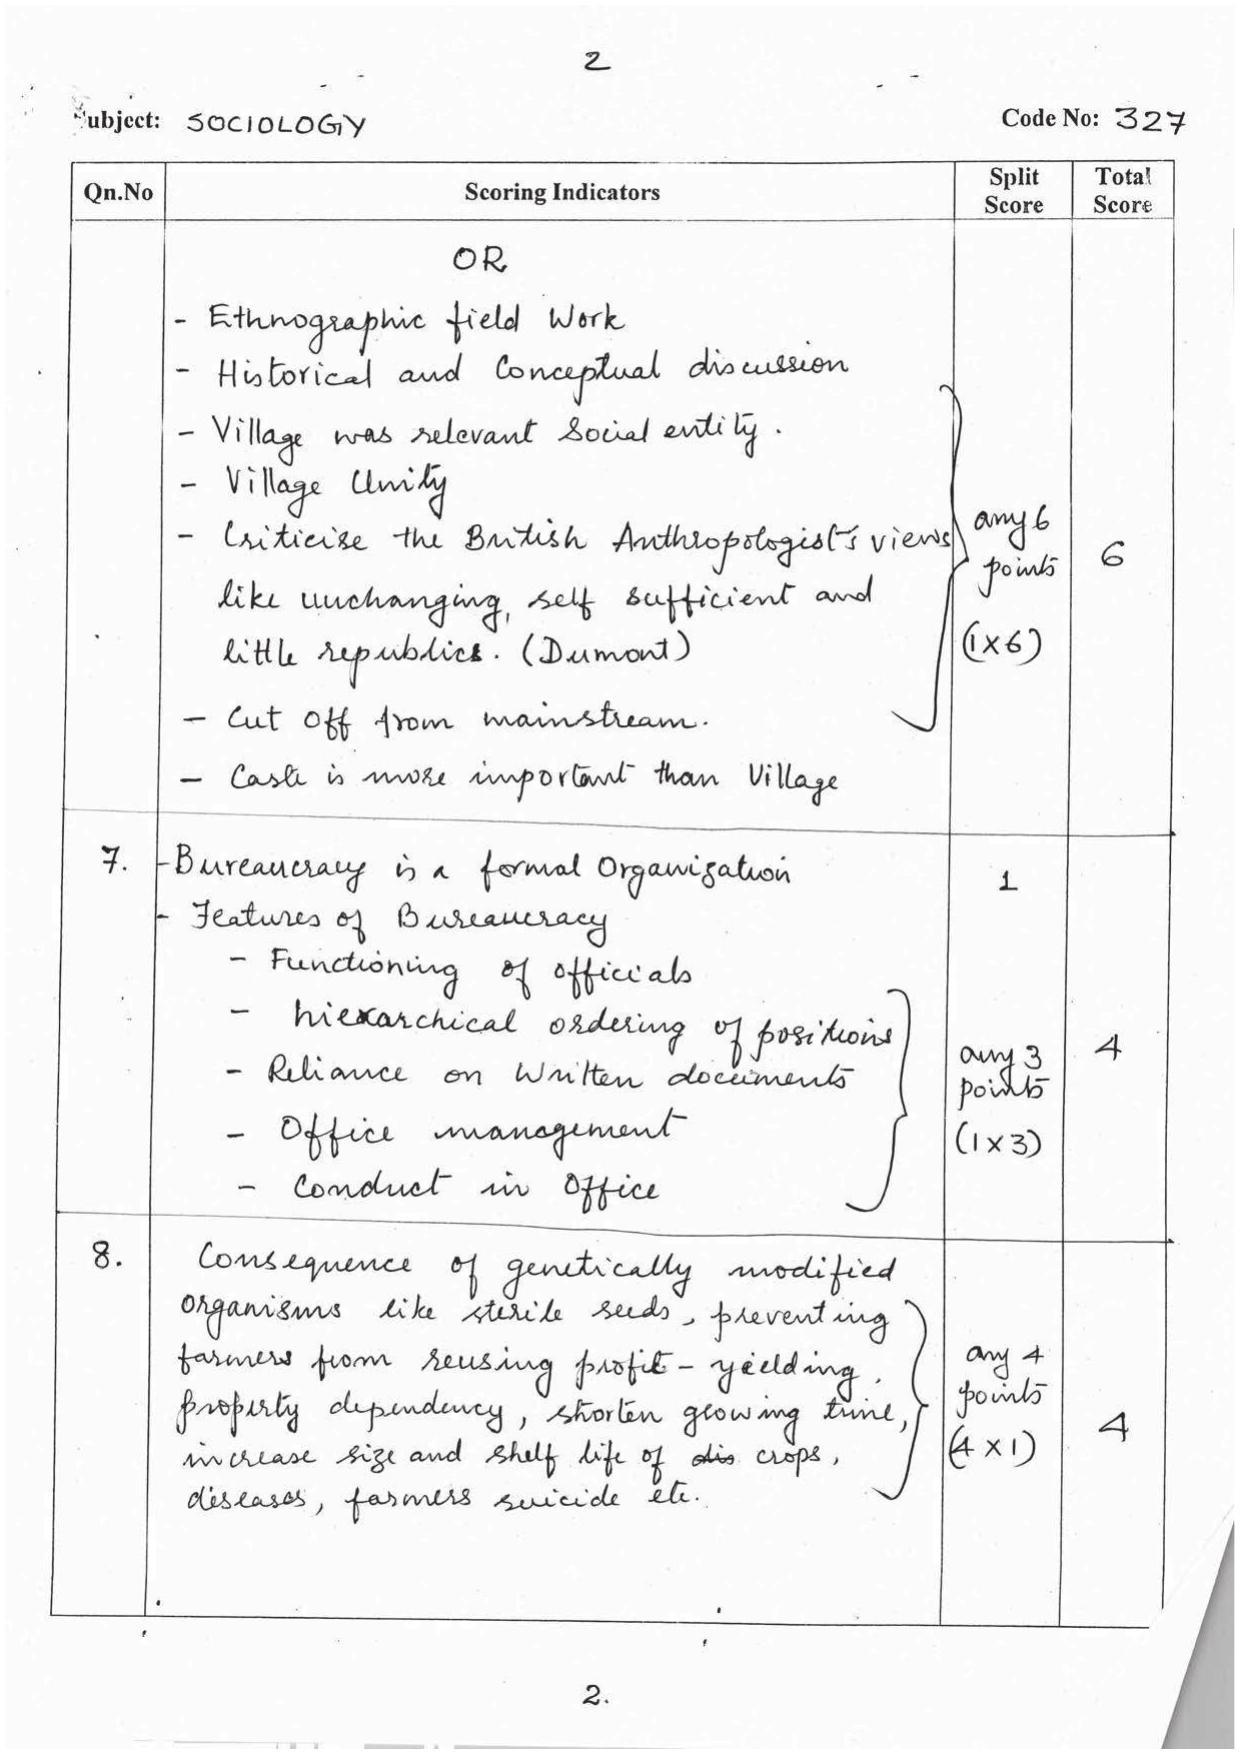 2
Subject: SOCIOLOGY Code No: 327
Qn.No Scoring Indicators Split Score Total Score
OR
- Ethnographic field Work
- Historical and Conceptual discussion
- Village was relevant Social entity.
- Village Unity
- Criticise the British Anthropologist's views
like unchanging, self sufficient and
little republics. (Dumont)
- Cut off from mainstream.
- Caste is more important than Village
any 6
points
(1x6)
6
7. - Bureaucracy is a formal Organization 1
- Features of Bureaucracy
- Functioning of officials
- hierarchical ordering of positions
- Reliance on Written documents
- Office management
- Conduct in Office
any 3
points
(1x3)
4
8. Consequence of genetically modified
organisms like sterile seeds, preventing
farmers from reusing profit - yielding,
property dependency, shorten growing time,
increase size and shelf life of dis crops,
diseases, farmers suicide etc.
any 4
points
(4x1)
4
2.